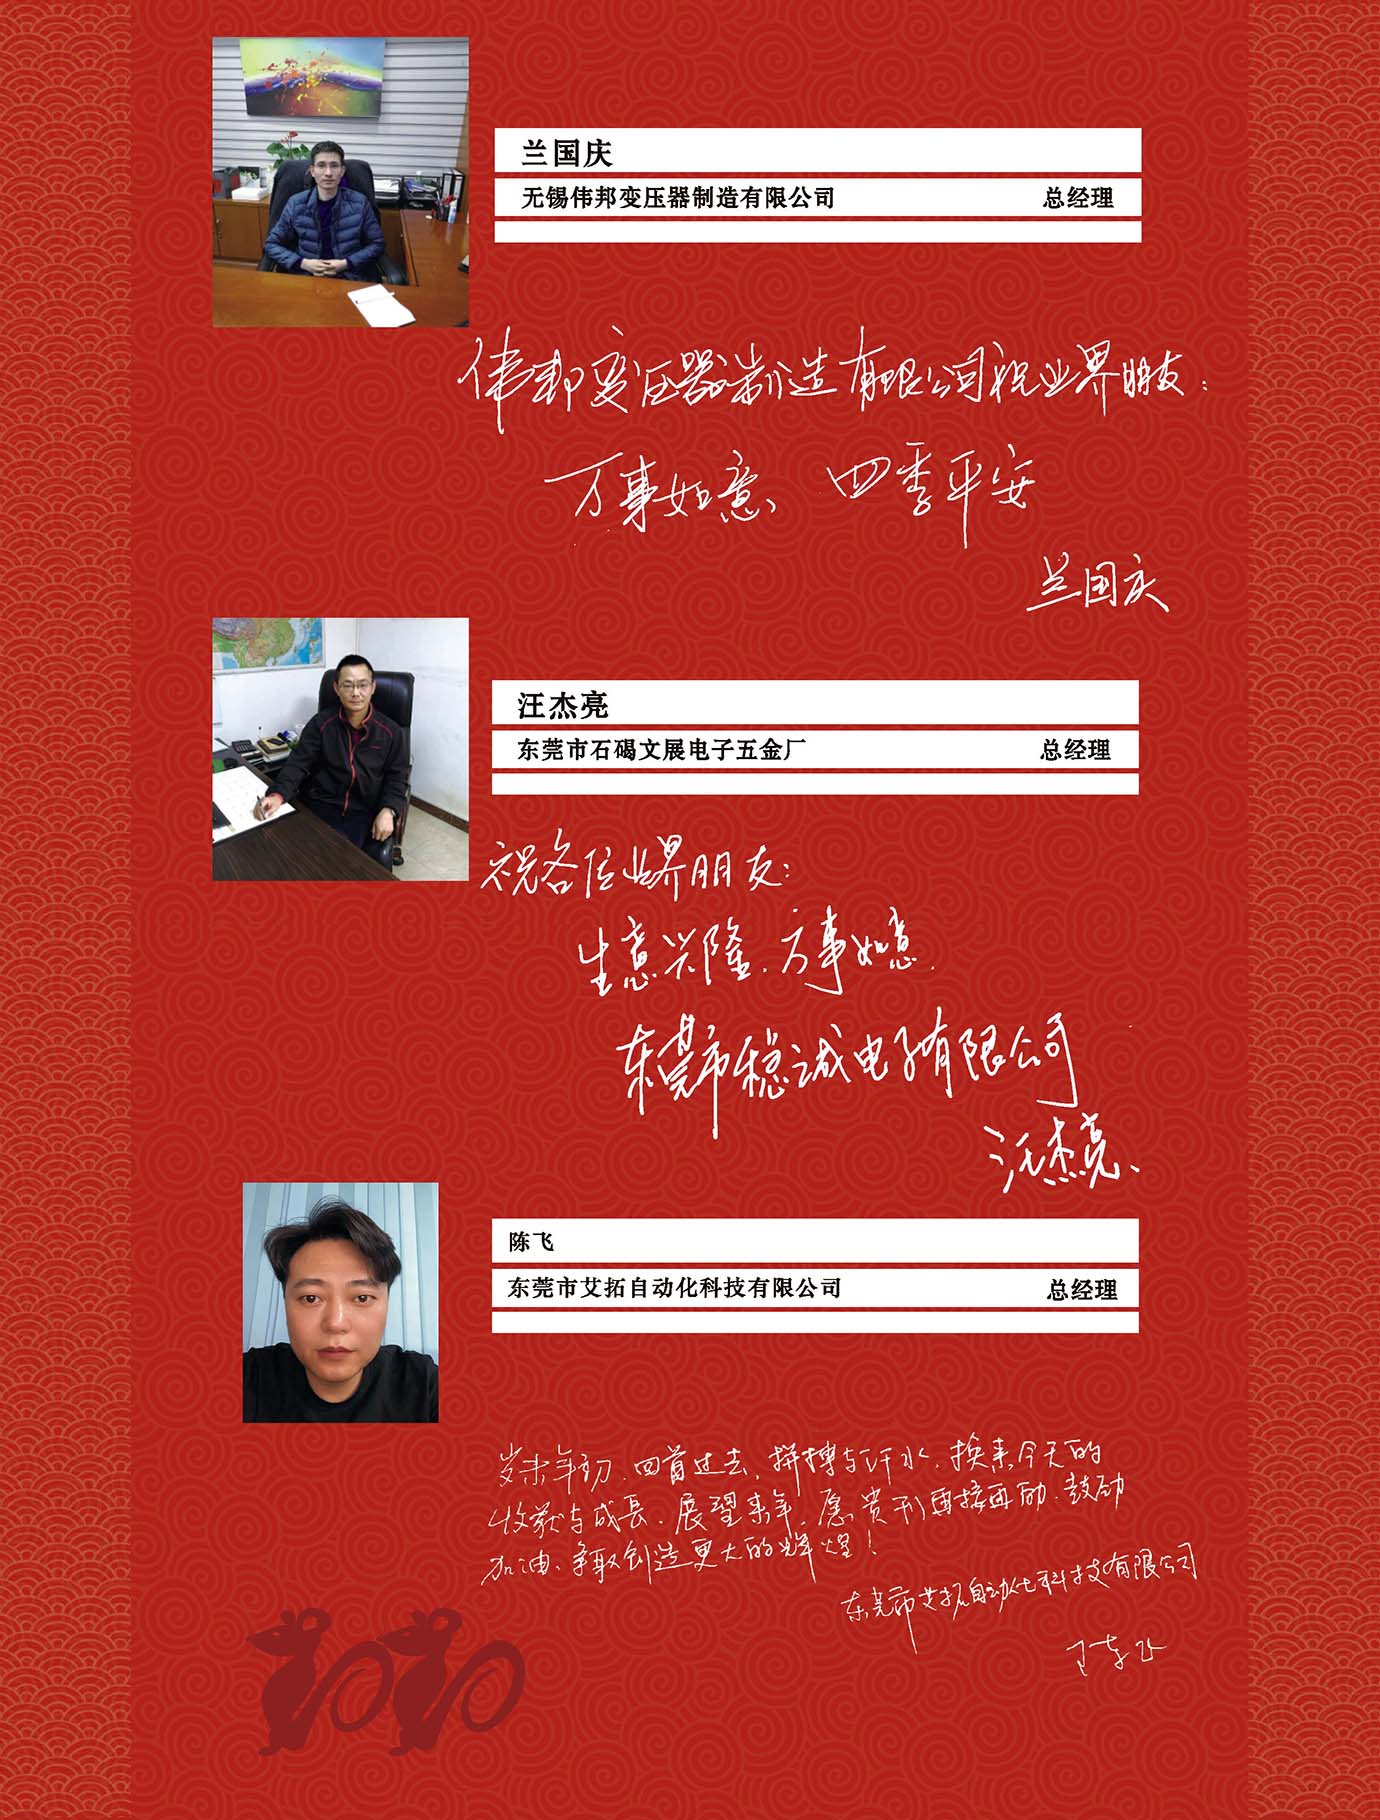 兰国庆
无锡伟邦变压器制造有限公司 总经理
伟邦变压器制造有限公司祝业界朋友:
万事如意、四季平安
兰国庆
汪杰亮
东莞市石碣文展电子五金厂 总经理
祝各位业界朋友:
生意兴隆.万事如意.
东莞市稳诚电子有限公司
汪杰亮、
陈飞
东莞市艾拓自动化科技有限公司 总经理
岁末年初.回首过去、拼搏与汗水.换来今天的
收获与成长.展望来年.愿贵刊再接再励.鼓劲
加油、争取创造更大的辉煌!
东莞市艾拓自动化科技有限公司
陈飞